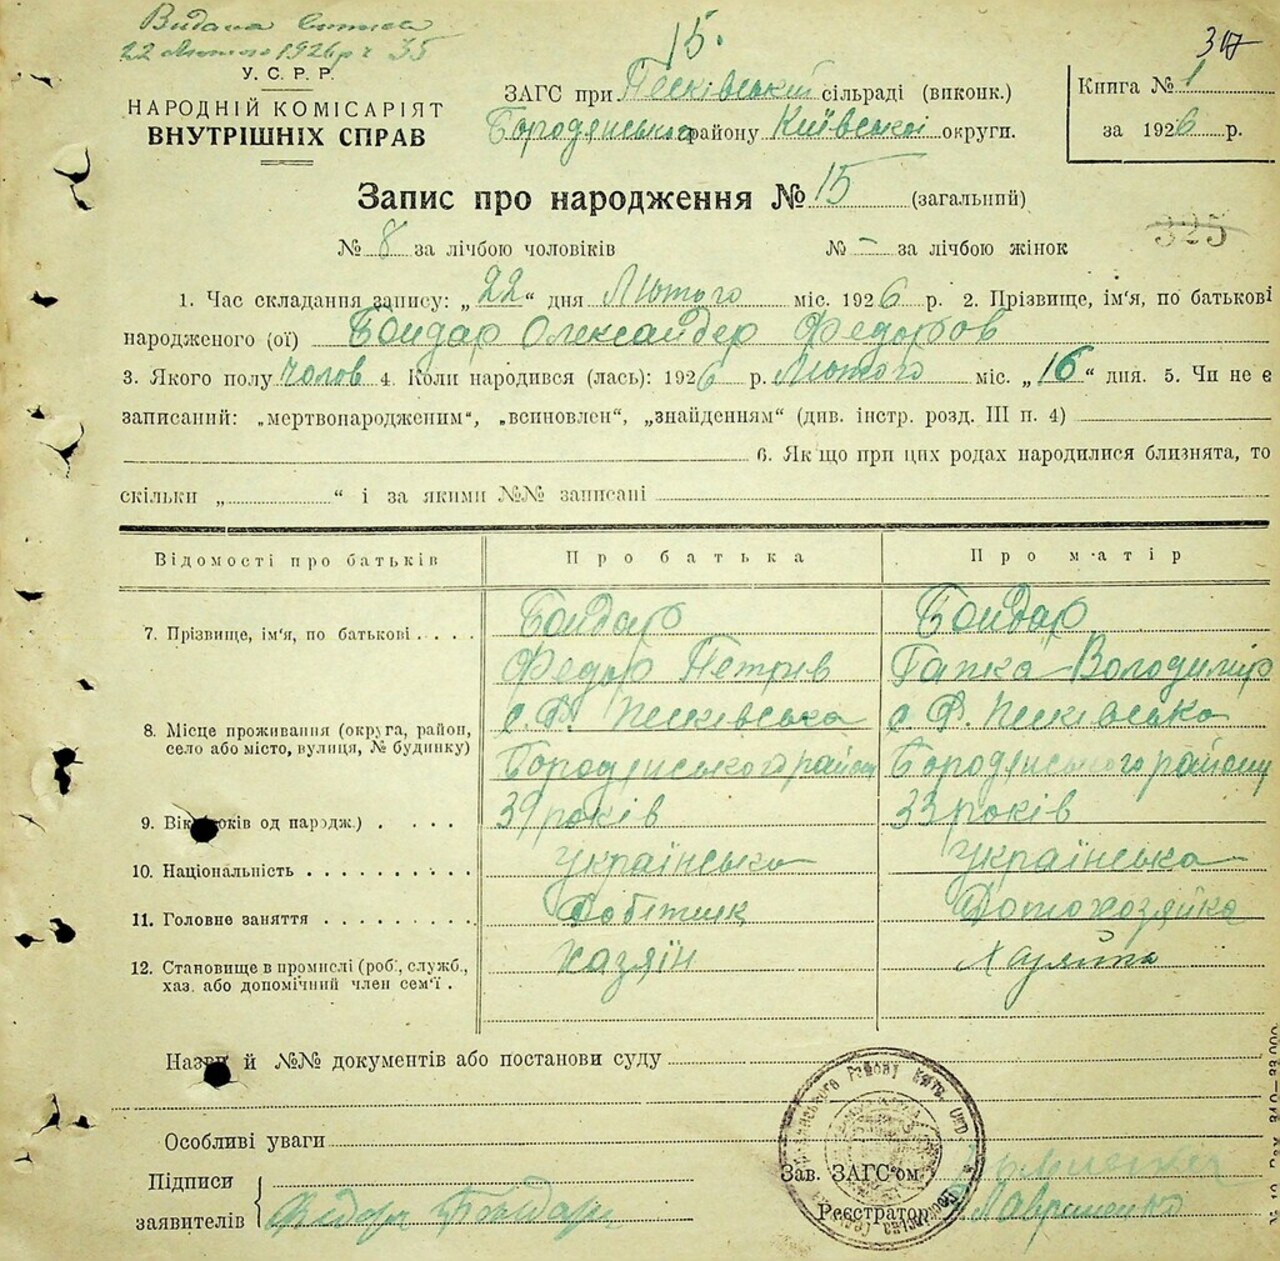 Видана
22 Лютого 1926 р ч 35
15.
317
У. С. Р. Р.
НАРОДНІЙ КОМІСАРІЯТ
ВНУТРІШНІХ СПРАВ
ЗАГС при Пісківський сільраді (виконк.)
Бородянського району Київської округи.
Книга № 1
за 1926 р.
Запис про народження № 15 (загальний)
№ 8 за лічбою чоловіків № – за лічбою жінок
325
1. Час складання запису: „22“ дня Лютого міс. 1926 р. 2. Прізвище, ім'я, по батькові
народженого (ої) Бондар Олександер Федоров
3. Якого полу чолов 4. Коли народився (лась): 1926 р. Лютого міс. „16“ дня. 5. Чи не є
записаний: „мертвонародженим“, „всиновлен“, „знайденням“ (див. інстр. розд. III п. 4)
6. Якщо при цих родах народилися близнята, то
скільки „ “ і за якими №№ записані
Відомості про батьків Про батька Про матір
7. Прізвище, ім'я, по батькові . . . . Бондар Бондар
Федор Петрів Гапка Володимір
8. Місце проживання (округа, район, село або місто, вулиця, № будинку) с. Пісківська с. Пісківсько
Бородянського району Бородянського району
9. Вік років од народж.) . . . . 39 років 33 років
10. Національність . . . . . . . . . . Українська Українська
11. Головне заняття . . . . . . . . . Робітник Домохозяйка
12. Становище в промислі (роб., служб., хаз. або допомічний член сем'ї . Хазяїн Хазяйка
Назви й №№ документів або постанови суду
Особливі уваги
Підписи
заявителів Федор Бондар
Зав. ЗАГС'ом
Реєстратор Лавриненко